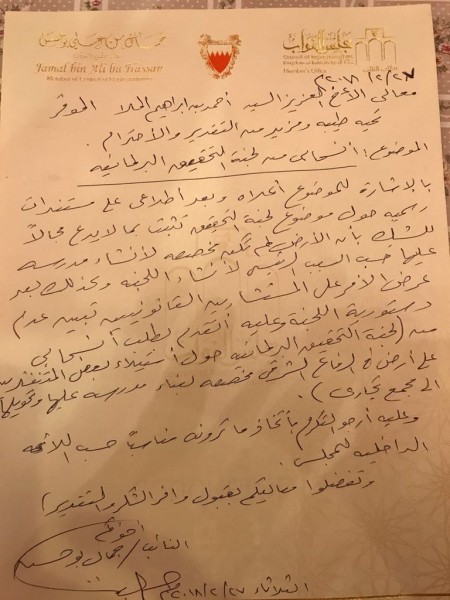 جمال بن علي بو حسن
Jamal bin Ali bu Hassan
مجلس النواب
Council of Representatives
Kingdom of Bahrain
Member's Office
٢٠١٨/٢/٢٧م
معالي الأخ العزيز السيد أحمد بن ابراهيم الملا الموقر
تحيه طيبه ومزيد من التقدير والأحترام .
الموضوع : أنسحابي من لجنة التحقيق البرلمانيه
بالإشارة للموضوع أعلاه وبعد أطلاعي على مستندات
رسميه حول موضوع لجنة التحقيق تثبت بما لايدع مجالاً
للشك بأن الأرض لم تكن مخصصه لأنشاء مدرسه
عليها حسب السبب الرئيسي لأنشاء اللجنه وكذلك بعد
عرض الأمر على المستشارين القانونيين تبيين عدم
دستورية اللجنة وعليه أتقدم بطلب أنسحابي
من (لجنة التحقيق البرلمانيه حول أستيلاء بعض المتنفذين
على أرض في الرفاع الشرقي مخصصه لبناء مدرسه عليها وتحويلها
الى مجمع تجاري ) .
وعليه أرجو التكرم بأتخاذ ما ترونه مناسباً حسب اللائحه
الداخليه للمجلس .
وتفضلوا معاليكم بقبول وافر الشكر والتقدير )
أخوكم
النائب / جمال بوحسن
الثلاثاء ٢٠١٨/٢/٢٧م